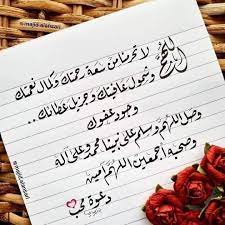 اللهم
لا تحرمنا من سعة رحمتك وكمال نعمتك
وشمول عافيتك وجزيل عطائك ..
وجود عفوك
وصل اللهم وسلم على نبينا محمد وعلى آله
وصحبه أجمعين اللهم آمين
دعوة محب